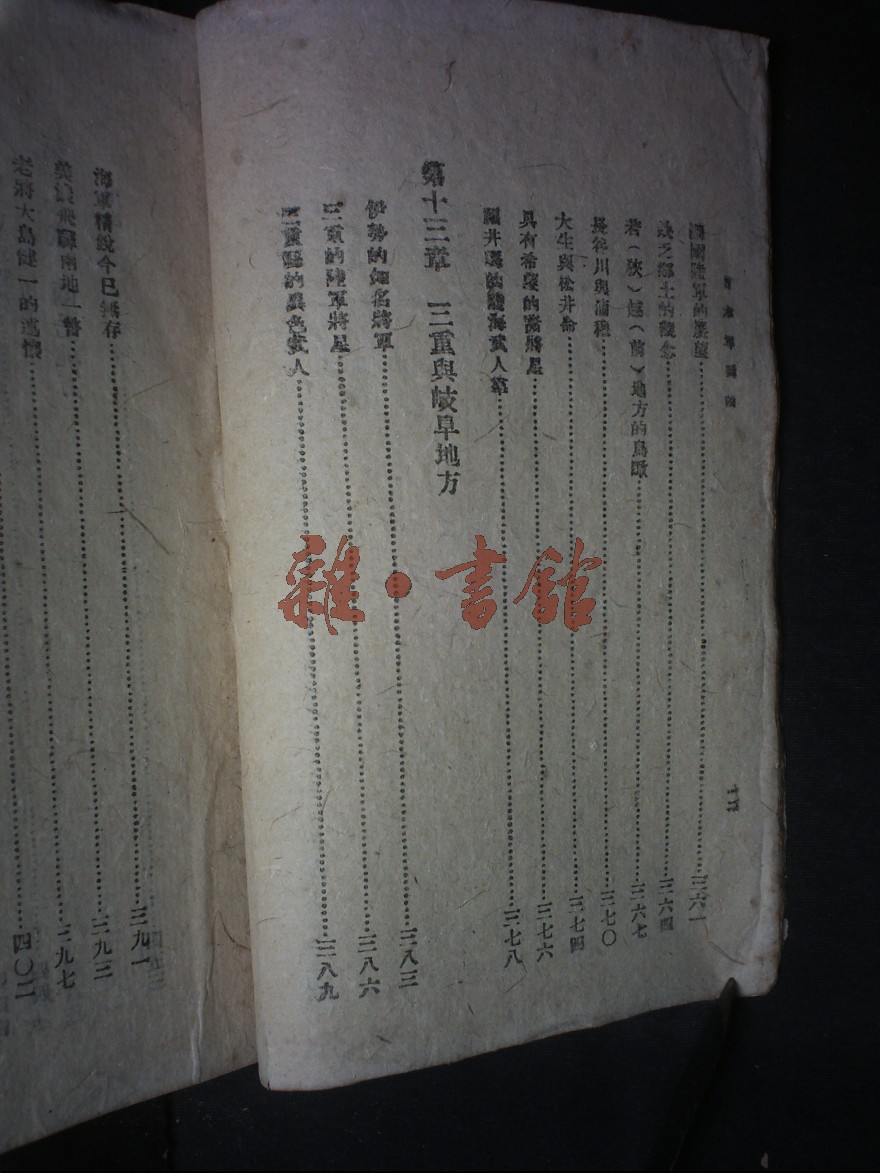 陸軍的展望……三六一
鄉土的……念……三六四
若(狹)越(前)地方的鳥瞰……三六七
長谷川與蒲穆……三七〇
大生與松井命……三七四
具有希望的舊將星……三七六
福井縣的陸海武人羣……三七八
第十三章 三重與岐阜地方
伊勢的知名將軍……三八三
三重的陸軍將星……三八六
三重縣的異色武人……三八九
海軍精銳今已無存……三九一
美濃飛驒兩地一瞥……三九三
老將大島健一的述懷……三九七
四〇二
雜·書館